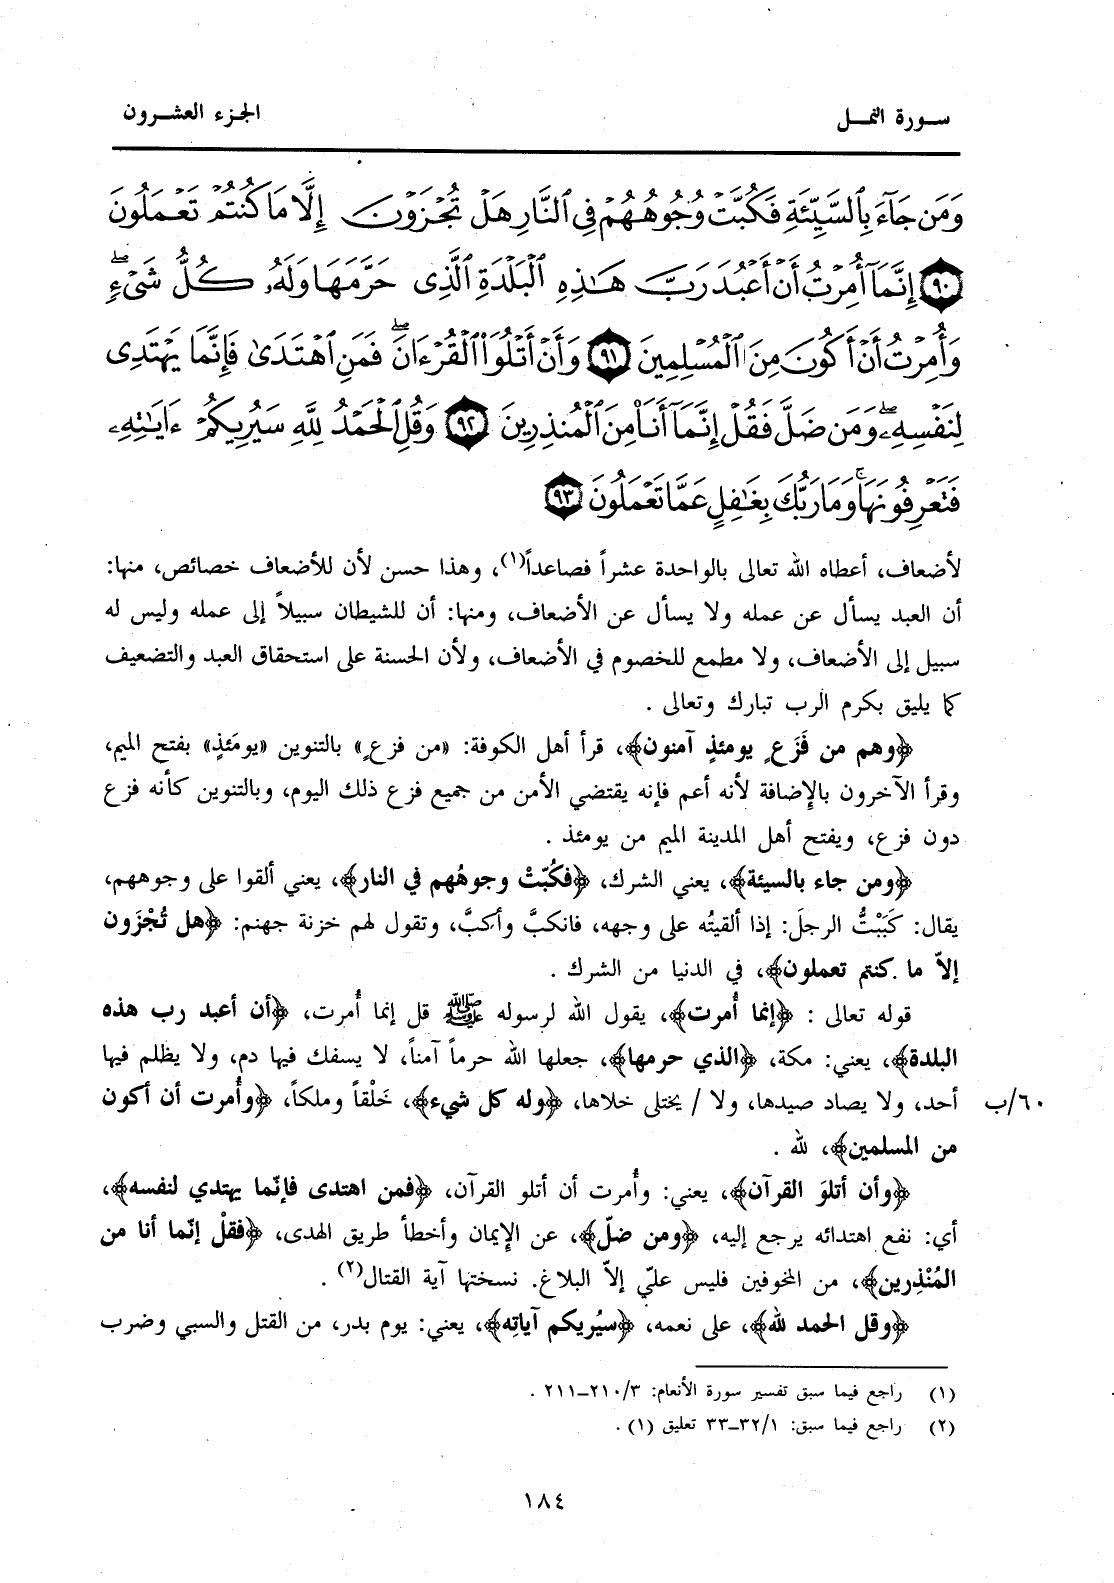 سورة النمل
الجزء العشرون
وَمَن جَآءَ بِٱلسَّيِّئَةِ فَكُبَّتْ وُجُوهُهُمْ فِى ٱلنَّارِ هَلْ تُجْزَوْنَ إِلَّا مَا كُنتُمْ تَعْمَلُونَ
﴿٩٠﴾ إِنَّمَآ أُمِرْتُ أَنْ أَعْبُدَ رَبَّ هَٰذِهِ ٱلْبَلْدَةِ ٱلَّذِى حَرَّمَهَا وَلَهُۥ كُلُّ شَىْءٍۖ
وَأُمِرْتُ أَنْ أَكُونَ مِنَ ٱلْمُسْلِمِينَ ﴿٩١﴾ وَأَنْ أَتْلُوَا۟ ٱلْقُرْءَانَۖ فَمَنِ ٱهْتَدَىٰ فَإِنَّمَا يَهْتَدِى
لِنَفْسِهِۦۖ وَمَن ضَلَّ فَقُلْ إِنَّمَآ أَنَا۠ مِنَ ٱلْمُنذِرِينَ ﴿٩٢﴾ وَقُلِ ٱلْحَمْدُ لِلَّهِ سَيُرِيكُمْ ءَايَٰتِهِۦ
فَتَعْرِفُونَهَاۚ وَمَا رَبُّكَ بِغَٰفِلٍ عَمَّا تَعْمَلُونَ ﴿٩٣﴾
لأضعاف، أعطاه الله تعالى بالواحدة عشراً فصاعداً(١)، وهذا حسن لأن للأضعاف خصائص، منها:
أن العبد يسأل عن عمله ولا يسأل عن الأضعاف، ومنها: أن للشيطان سبيلاً إلى عمله وليس له
سبيل إلى الأضعاف، ولا مطمع للخصوم في الأضعاف، ولأن الحسنة على استحقاق العبد والتضعيف
كما يليق بكرم الرب تبارك وتعالى .
﴿وهم من فَزَعٍ يومئذٍ آمنون﴾، قرأ أهل الكوفة: «من فزعٍ» بالتنوين «يومَئذٍ» بفتح الميم،
وقرأ الآخرون بالإضافة لأنه أعم فإنه يقتضي الأمن من جميع فزع ذلك اليوم، وبالتنوين كأنه فزع
دون فزع، ويفتح أهل المدينة الميم من يومئذ .
﴿ومن جاء بالسيئة﴾، يعني الشرك، ﴿فكُبّتْ وجوهُهم في النار﴾، يعني ألقوا على وجوههم،
يقال: كَبَبْتُ الرجلَ: إذا ألقيتُه على وجهه، فانكبَّ وأكبَّ، وتقول لهم خزنة جهنم: ﴿هل تُجْزَون
إلاّ ما كنتم تعملون﴾، في الدنيا من الشرك .
قوله تعالى : ﴿إنما أُمرت﴾، يقول الله لرسوله ﷺ قل إنما أُمرت، ﴿أن أعبد رب هذه
البلدة﴾، يعني: مكة، ﴿الذي حرمها﴾، جعلها الله حرماً آمناً، لا يسفك فيها دم، ولا يظلم فيها
٦٠/ب أحد، ولا يصاد صيدها، ولا / يختلى خلاها، ﴿وله كل شيء﴾، خَلْقاً وملكاً، ﴿وأُمرت أن أكون
من المسلمين﴾، لله .
﴿وأن أتلوَ القرآن﴾، يعني: وأُمرت أن أتلو القرآن، ﴿فمن اهتدى فإنّما يهتدي لنفسه﴾،
أي: نفع اهتدائه يرجع إليه، ﴿ومن ضلّ﴾، عن الإيمان وأخطأ طريق الهدى، ﴿فقلْ إنّما أنا من
المُنْذِرين﴾، من المخوفين فليس عليّ إلاّ البلاغ. نسختها آية القتال(٢) .
﴿وقل الحمد لله﴾، على نعمه، ﴿سيُريكم آياتِه﴾، يعني: يوم بدر، من القتل والسبي وضرب
(١) راجع فيما سبق تفسير سورة الأنعام: ٣/٢١٠-٢١١ .
(٢) راجع فيما سبق: ١/٣٢-٣٣ تعليق (١) .
١٨٤